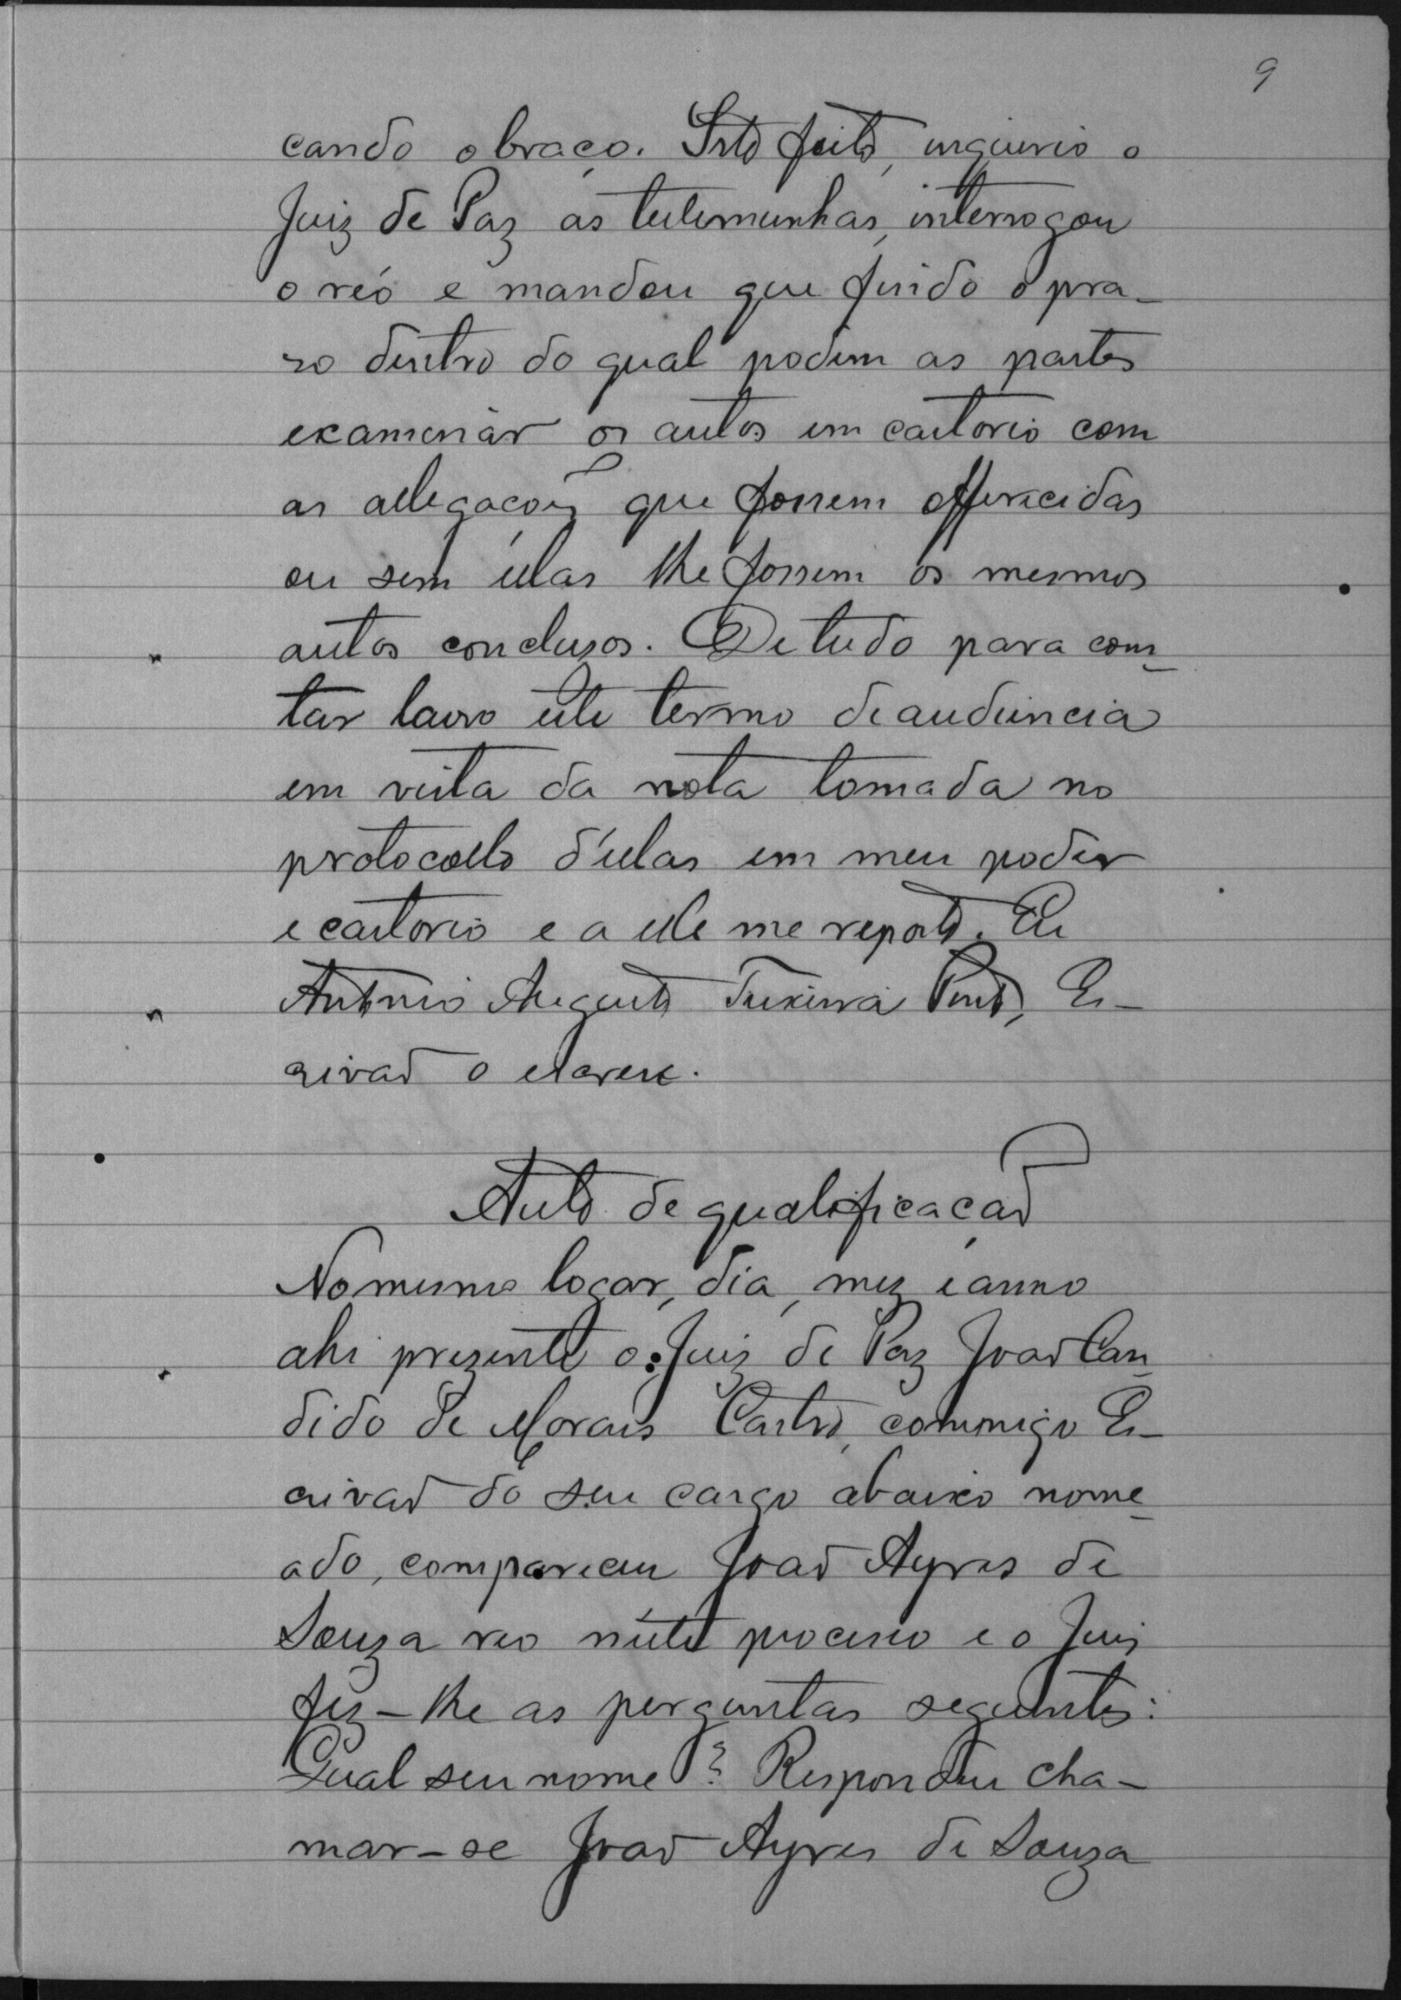 9
cando o braço. Isto feito, inquirio o
Juiz de Paz as testemunhas, interrogou
o réo e mandou que findo o pra-
so dentro do qual podem as partes
examinar os autos em cartorio com
as allegações que fossem offerecidas
ou sem ellas lhe fossem os mesmos
autos conclusos. De tudo para cons-
tar lavro este termo de audiencia
em vista da nota tomada no
protocollo d'ellas em meu poder
e cartorio e a elle me reporto. Eu
Antonio Augusto Teixeira Pinto, Es-
crivão o escrevi.
Auto de qualificação
No mesmo logar, dia, mez e anno
ahi prezente o Juiz de Paz João Can-
dido de Morais Castro, commigo Es-
crivão do seu cargo abaixo nome-
ado, compareceu João Ayres de
Souza reo néste processo e o Juiz
fez-lhe as perguntas seguintes:
Qual seu nome? Respondeu cha-
mar-se João Ayres de Souza